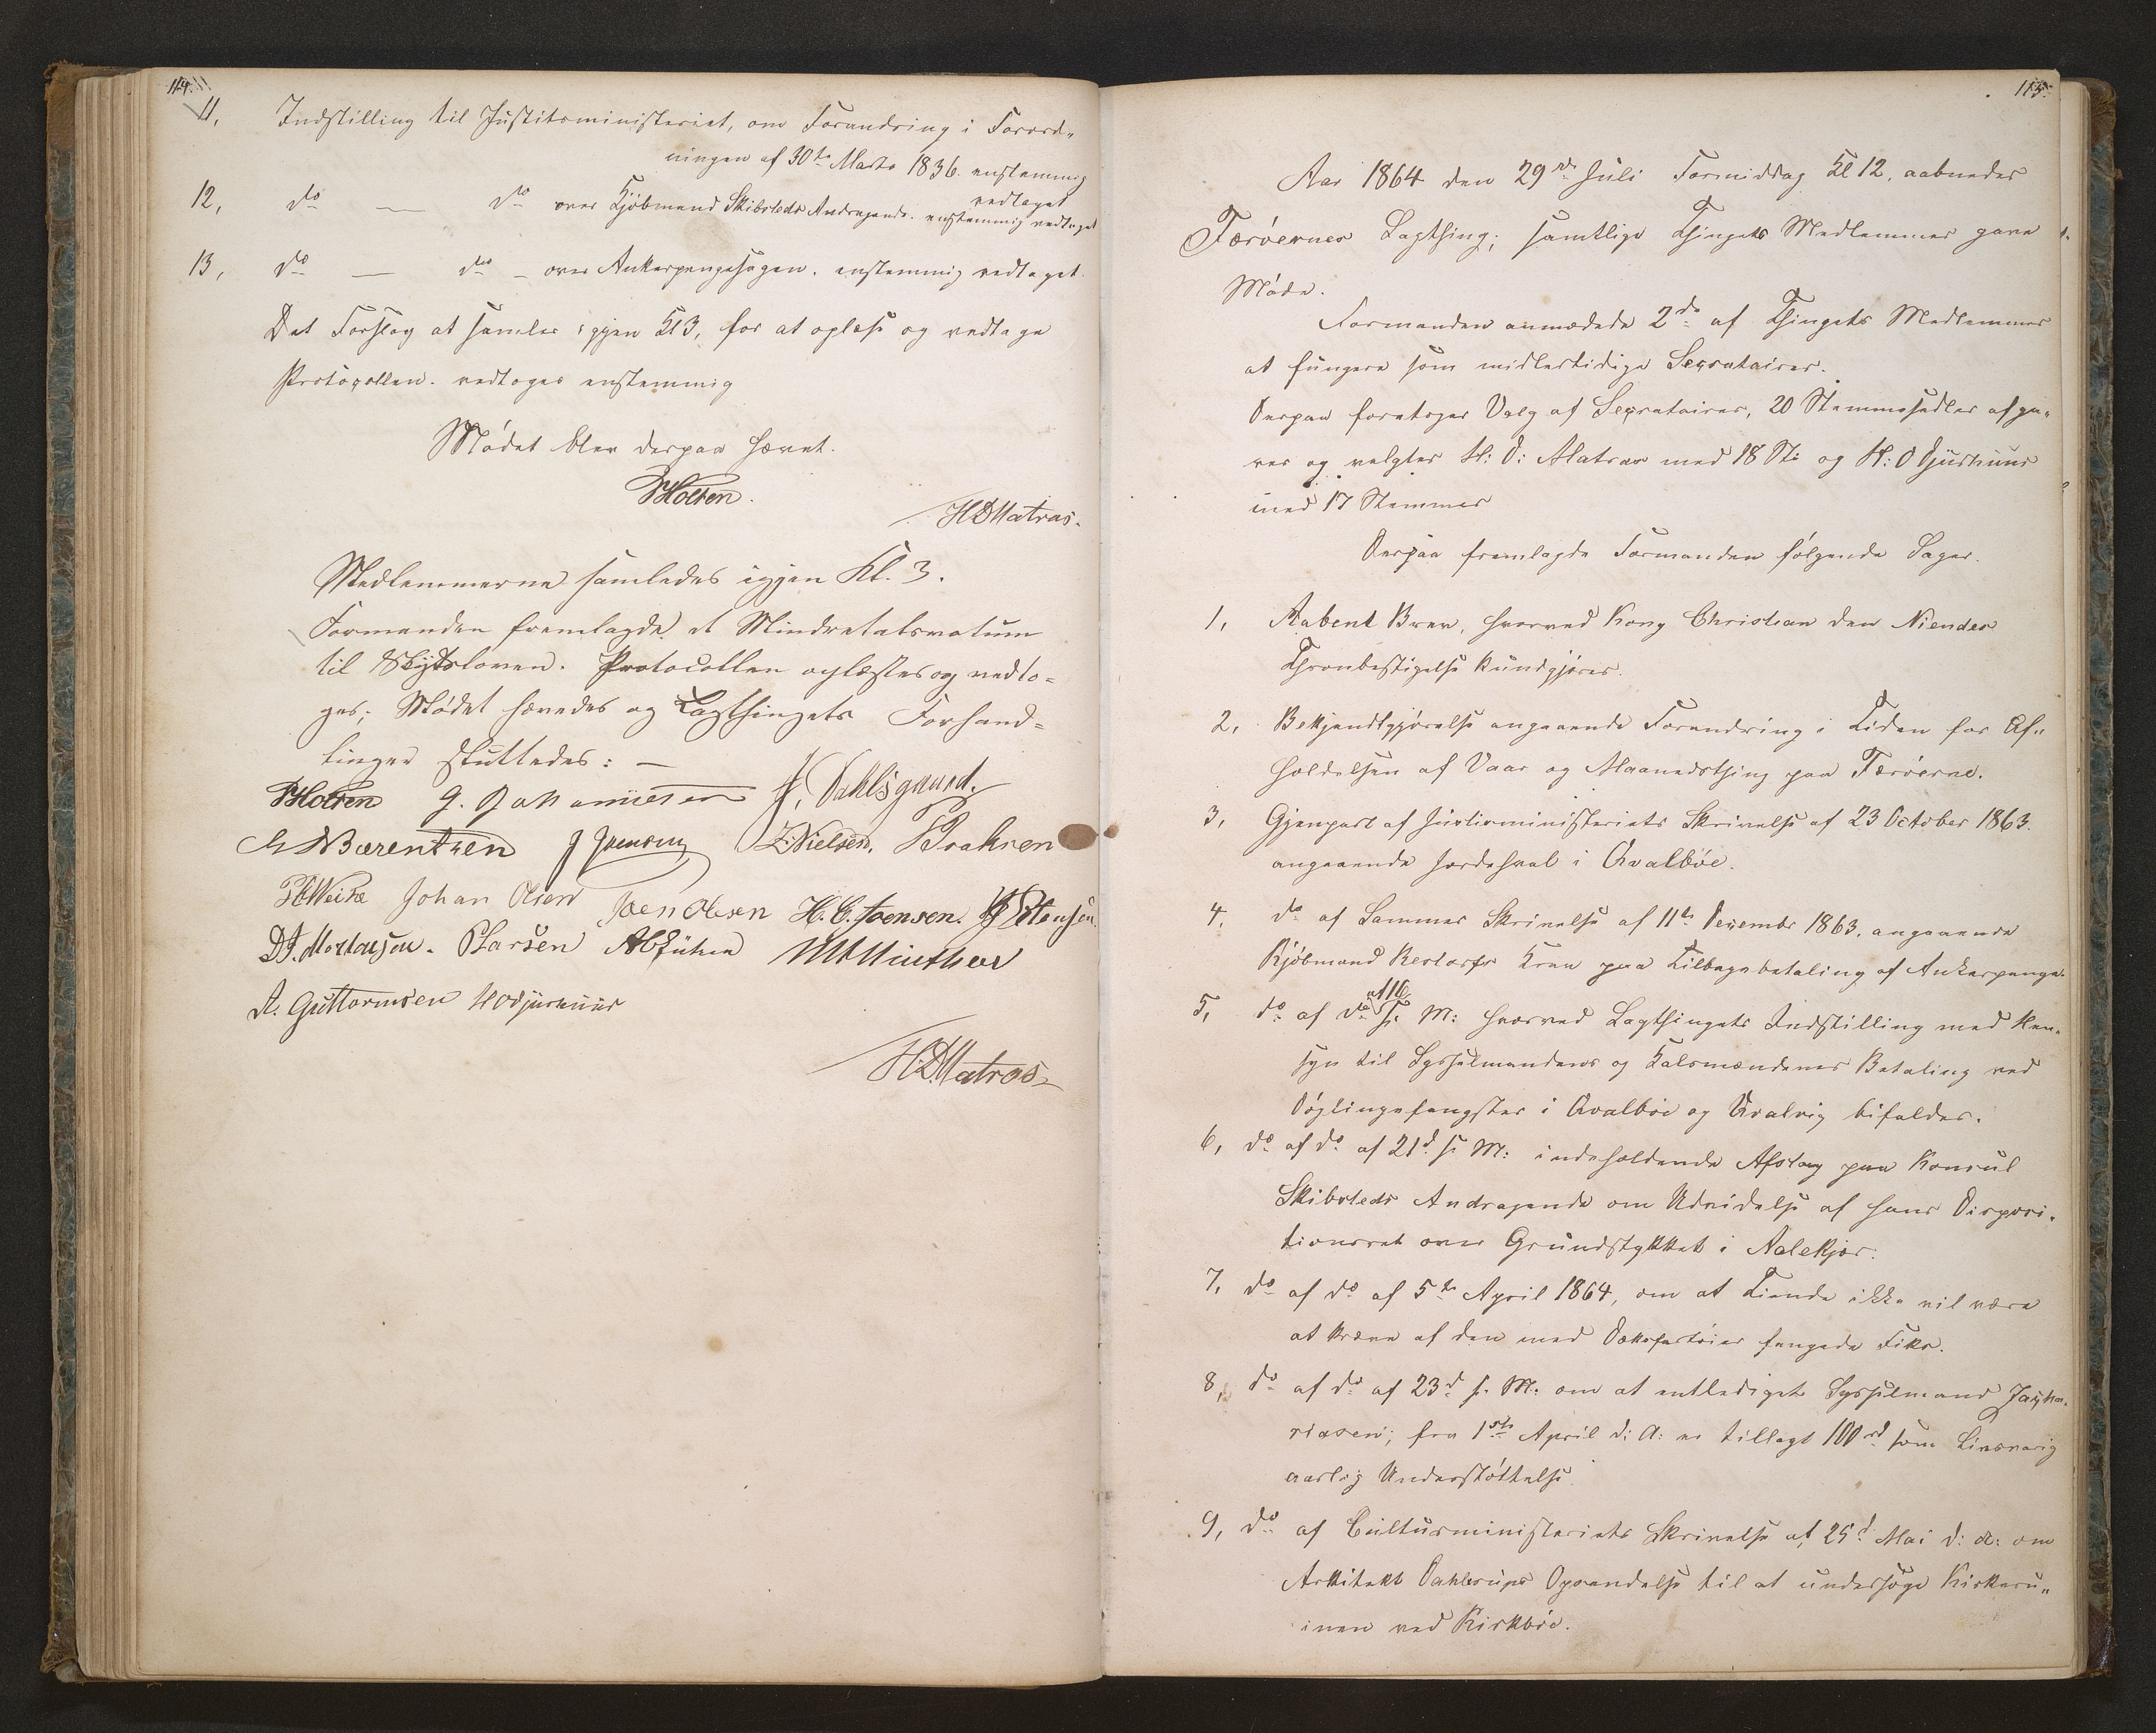 114.
11, Indstilling til Justitsministeriet, om Forandring i Forord„
ningen af 30te Marts 1836. enstemmig
vedtaget
12, do — do over Kjöbmand Skibsteds Andragende. enstemmig vedtaget
13, do — do — over Ankerpengesagen. enstemmig vedtaget.
Det Forslag at samles igjen Kl 3, for at oplæse og vedtage
Protocollen. vedtoges enstemmig
Mödet blev derpaa hævet.
PHolten.
HDMatras.
Medlemmerne samledes igjen Kl. 3.
Formanden fremlagde et Mindretalsvotum
til Skydsloven. Protocollen oplæstes og vedto=
ges; Mödet hævedes og Lagthingets Forhand=
linger sluttedes: —
PHolten J. Dahlsgaard.
Bærentsen J Joensen Z Nielsen. Isaksen
Weihe Johan Olsen Joen Olesen H. C. Joensen. Petersen.
D. Mortensen. PLarsen MMinther
A. Guttormsen HODjurhuus
H.DMatras
115.
Aar 1864 den 29de Juli Formiddag Kl 12. aabnedes
Færöernes Lagthing; samtlige Thingets Medlemmer gave
Möde.
Formanden anmodede 2de af Thingets Medlemmer
at fungere som midlertidige Secretairer.
Derpaa foretoges Valg af Secretairer, 20 Stemmesedler afga„
ves og valgtes H: D: Matras med 18 St: og H: O Djurhuus
med 17 Stemmer
Derpaa fremlagde Formanden fölgende Sager.
1, Aabent Brev, hvorved Kong Christian den Niendes
Thronbestigelse kundgjöres.
2, Bekjendtgjörelse angaaende Forandring i Tiden for Af„
holdelsen af Vaar og Maanedsthing paa Færöerne.
3, Gjenpart af Justitsministeriets Skrivelse af 23 October 1863.
angaaende hordehval i Qvalböe.
4, do af Sammes Skrivelse af 11te Decembr 1863. angaaende
Kjöbmand Restorfs Krav paa Tilbagebetaling af Ankerpenge.
5, do af do af 16 s. M: hvorved Lagthingets Indstilling med Hen„
syn til Sysselmandens og Kalsmændenes Betaling ved
Döglingefangster i Qvalböe og Qvalvig bifaldes.
6, do af do af 21d s. M: indeholdende Afslag paa Konsul
Skibsteds Andragende om Udvidelse af hans Disposi„
tionsret over Grundstykket i Aalekjær.
7, do af do af 5te April 1864, om at Tiende ikke vil være
at kræve af den med Dæksfartöier fangede Fisk.
8, do af do af 23d s. M. om at entlediget Sysselmand Zacha„
riasen; fra 1ste April d: A: er tillagt 100rd som Livsvarig
aarlig Understöttelse.
9, do af Cultusministeriets Skrivelse af 25d Mai d: A: om
Arkitekt Dahlerups Opsendelse til at undersöge Kirkeru„
inen ved Kirkböe.